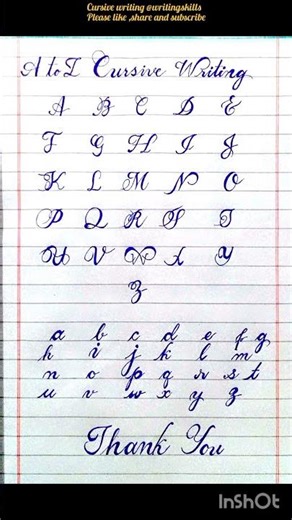 Cursive writing @writingskills
Please like ,share and subscribe
A to Z Cursive Writing
A B C D E
F G H I J
K L M N O
P Q R S T
U V W X Y
Z
a b c d e f g
h i j k l m
n o p q r s t
u v w x y z
Thank You
InShOt